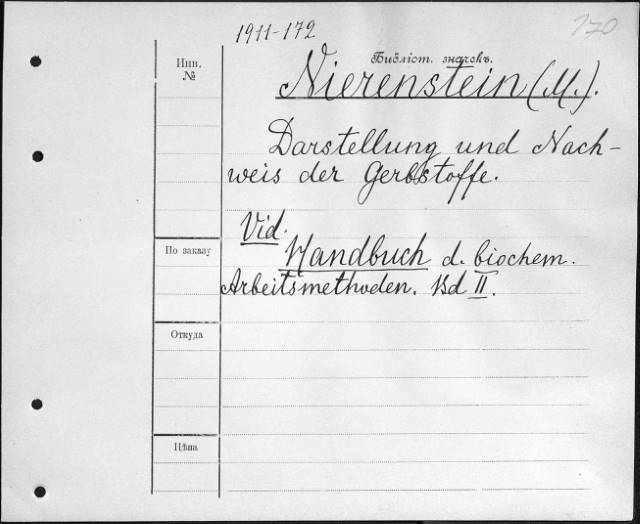 1911-172
170
Инв. №
Библіот. значекъ.
Nierenstein (M.).
Darstellung und Nach-
weis der Gerbstoffe.
Vid.
Handbuch d. biochem.
Arbeitsmethoden. Bd II.
По заказу
Откуда
Цѣна